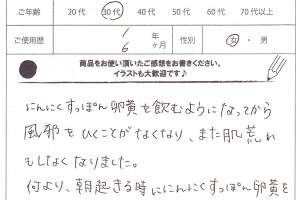 ご年齢 20代 30代 40代 50代 60代 70代以上
ご使用歴 1年 6ヶ月 性別 女・男
商品をお使い頂いたご感想をお書きください。
イラストも大歓迎です♪
にんにくすっぽん卵黄を飲むようになってから
風邪をひくことがなくなり、また肌荒れ
もしなくなりました。
何より、朝起きる時ににんにくすっぽん卵黄を